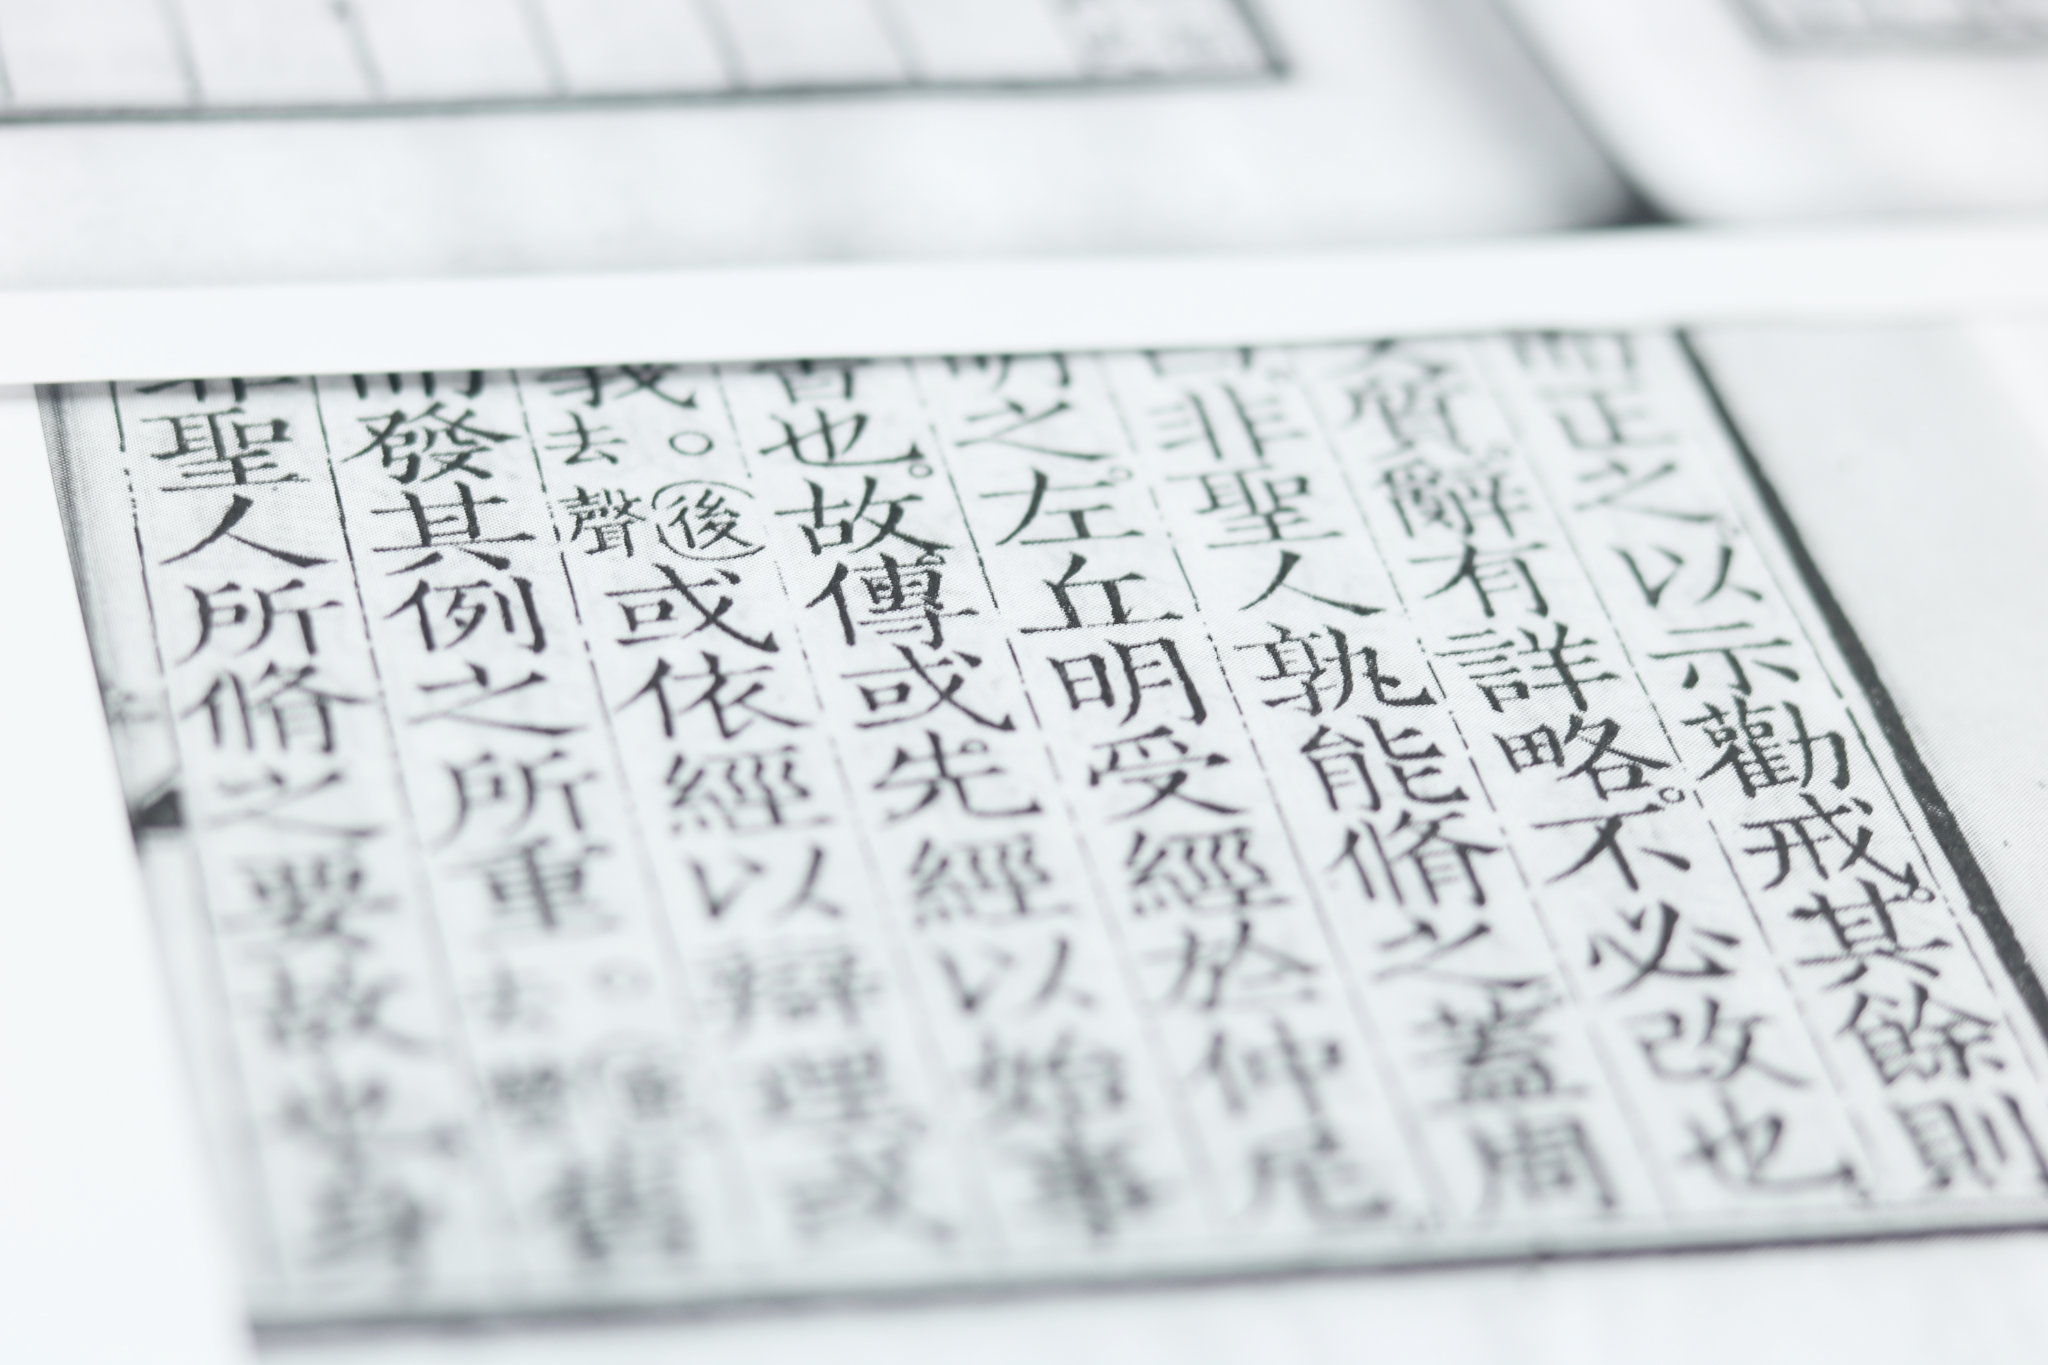 正之以示勸戒其餘則
質辭有詳略不必改也
非聖人孰能脩之蓋周
明之左丘明受經於仲尼
書也故傳或先經以始事
義去聲後或依經以辯理或
而發其例之所重去聲舊
非聖人所脩之要故也身